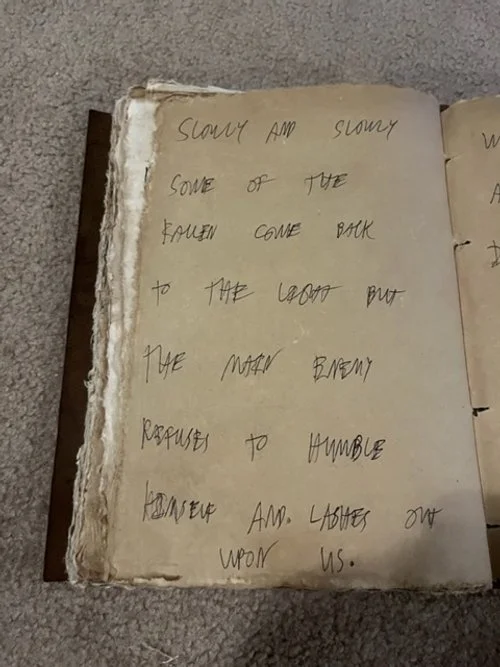 SLOWLY AND SLOWLY
SOME OF THE
FALLEN COME BACK
TO THE LIGHT BUT
THE MAIN ENEMY
REFUSES TO HUMBLE
HIMSELF AND. LASHES OUT
UPON US.
W
A